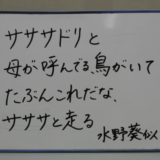 ササササドリと
母が呼んでる、鳥がいて
たぶんこれだな、
ササササと走る
水野葵似